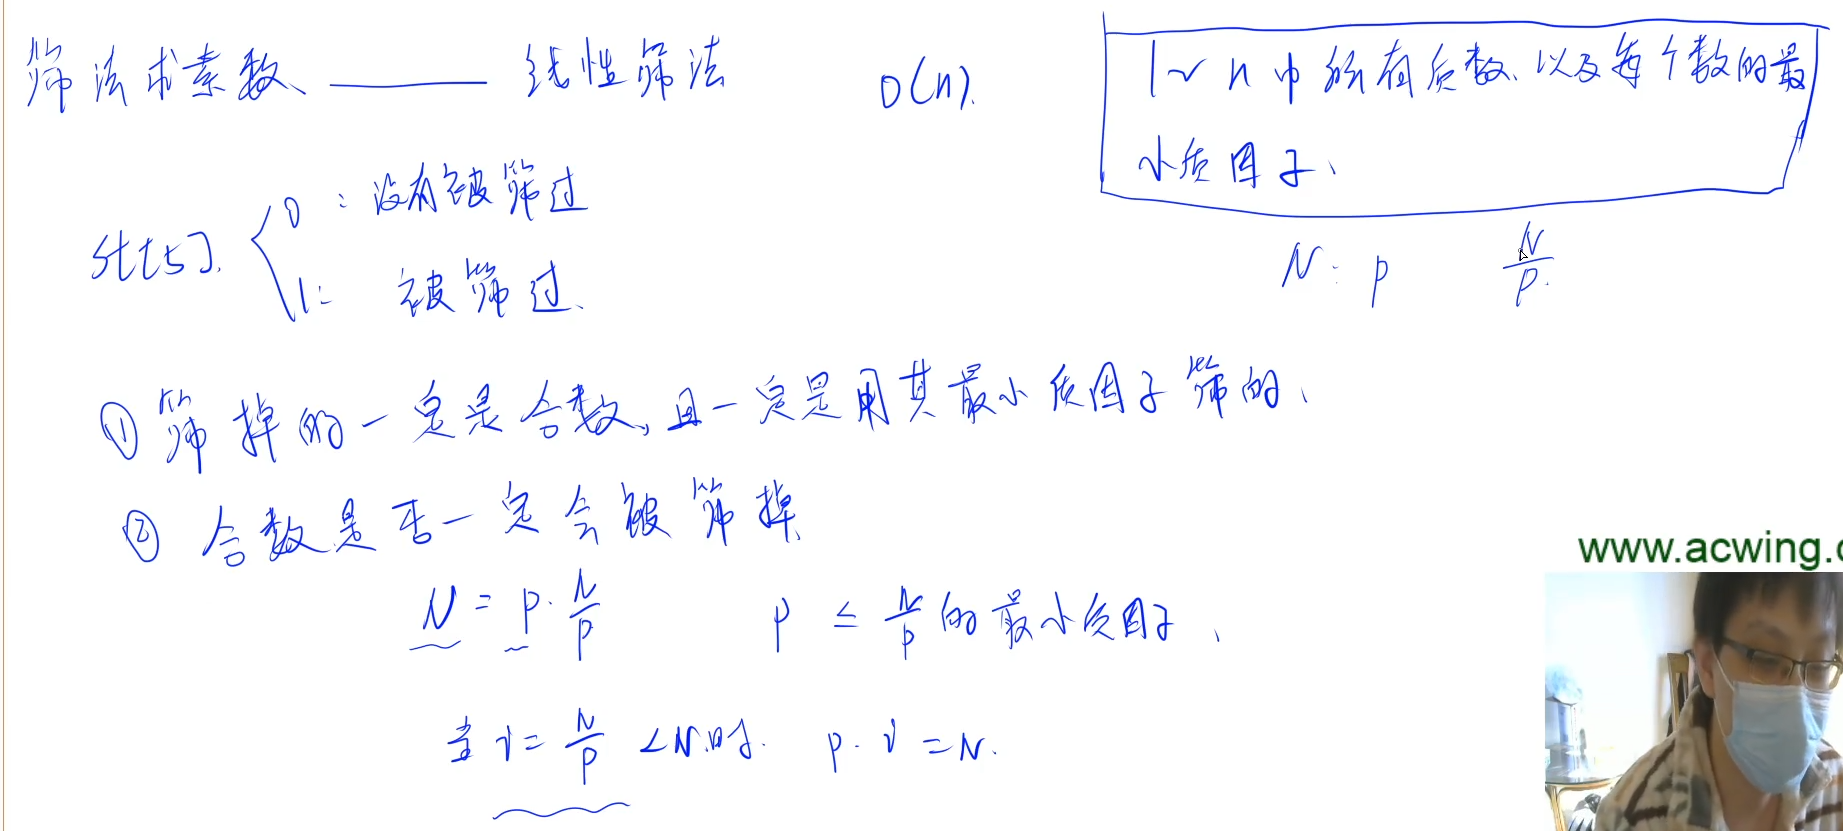 筛法求素数、—— 线性筛法 O(n).
1~n中所有质数、以及每个数的最
小质因子、
st[5]. 0：没有被筛过
1： 被筛过.
N: p N/p.
① 筛掉的一定是合数，且一定是用其最小质因子筛的、
② 合数是否一定会被筛掉
N = p · N/p p ≤ N/p 的最小质因子、
当 i = N/p < N 时. p · i = N.
www.acwing.c